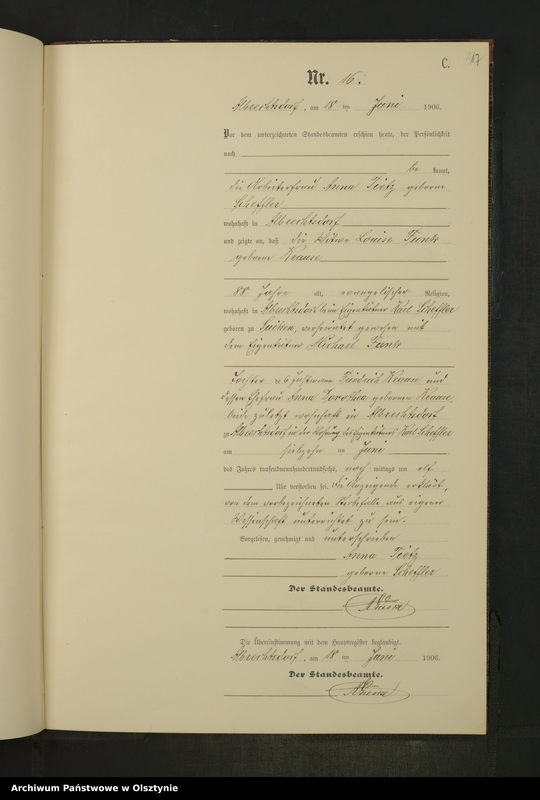 C. 17
Nr. 16.
Albrechtsdorf, am 18 ten Juni 1906.
Vor dem unterzeichneten Standesbeamten erschien heute, der Persönlichkeit
nach
be kannt,
die Arbeiterfrau Anna Tietz geborne
Scheffler
wohnhaft in Albrechtsdorf
und zeigte an, daß die Witwe Louise Funk
geborne Krause
88 Jahre alt, evangelischer Religion,
wohnhaft in Albrechtsdorf beim Eigentümer Karl Scheffler
geboren zu verheiratet gewesen mit
dem Eigentümer Michael Funk
Tochter des Friedrich Krause und
dessen Ehefrau Anna Dorothea gebornen Krause
beide zuletzt wohnhaft in Albrechtsdorf
zu Albrechtsdorf in der Wohnung des Eigentümers Karl Scheffler
am siebzehn ten Juni
des Jahres tausendneunhundertundsechs, nach mittags um elf
Uhr verstorben sei. Die Anzeigende erklärt,
von dem vorbezeichneten Sterbefalle aus eigener
Wissenschaft unterrichtet zu sein.
Vorgelesen, genehmigt und unterschrieben
Anna Tietz
geborne Scheffler
Der Standesbeamte.
Die Übereinstimmung mit dem Hauptregister beglaubigt.
Albrechtsdorf, am 18 ten Juni 1906.
Der Standesbeamte.
Archiwum Państwowe w Olsztynie